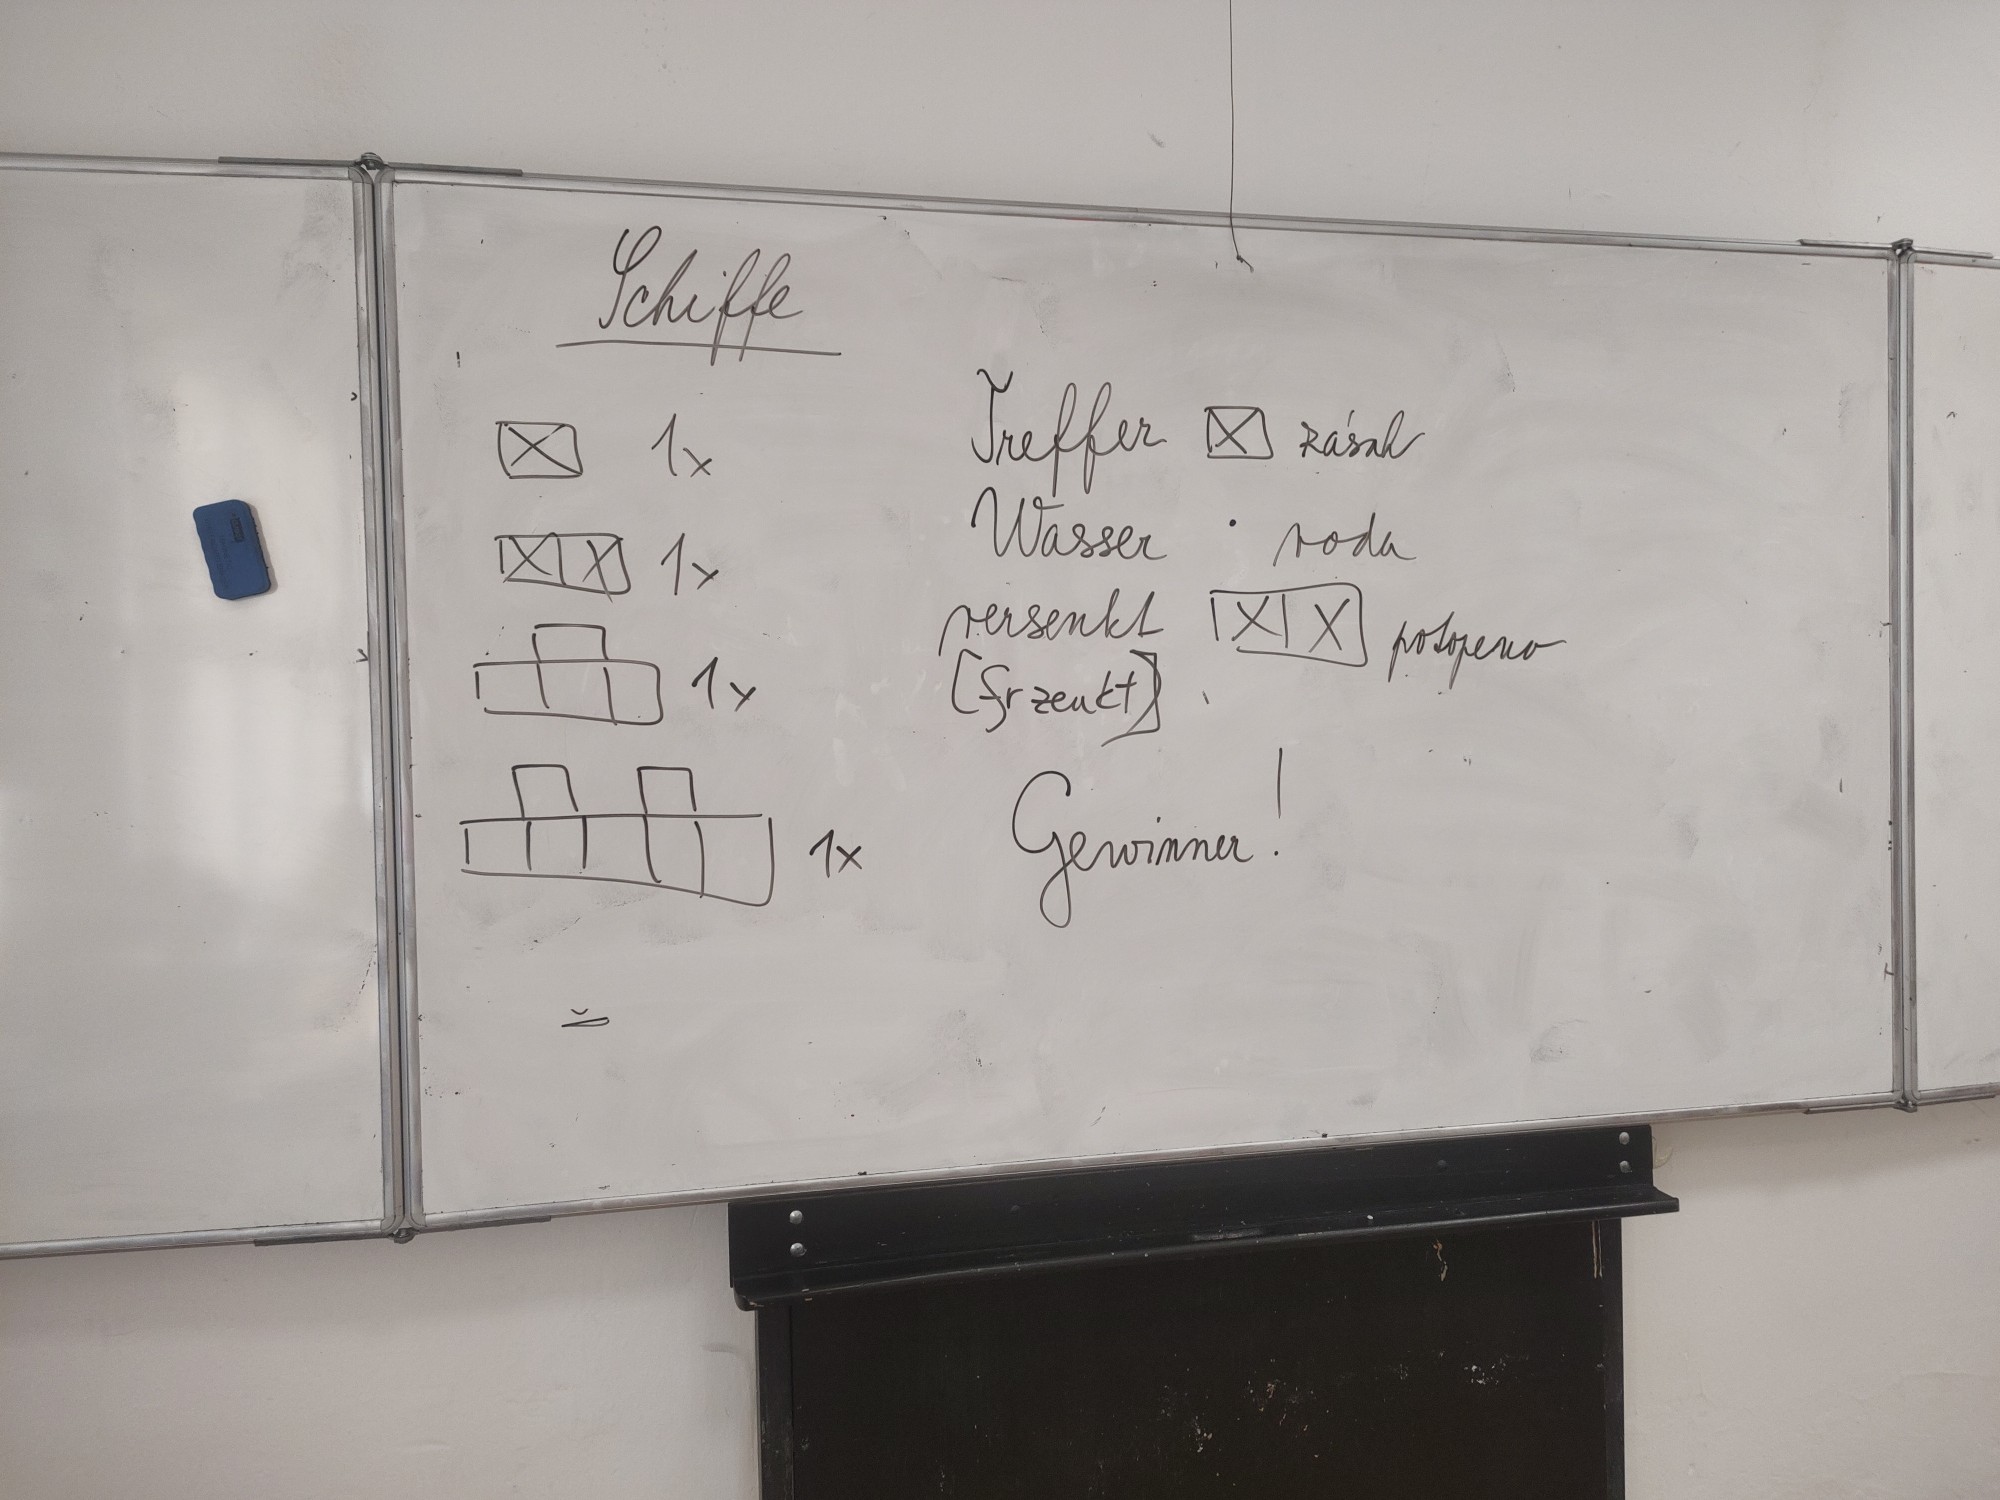 Schiffe
1x
1x
1x
1x
Treffer zásah
Wasser • voda
versenkt potopeno
[frzenkt]
Gewinner!